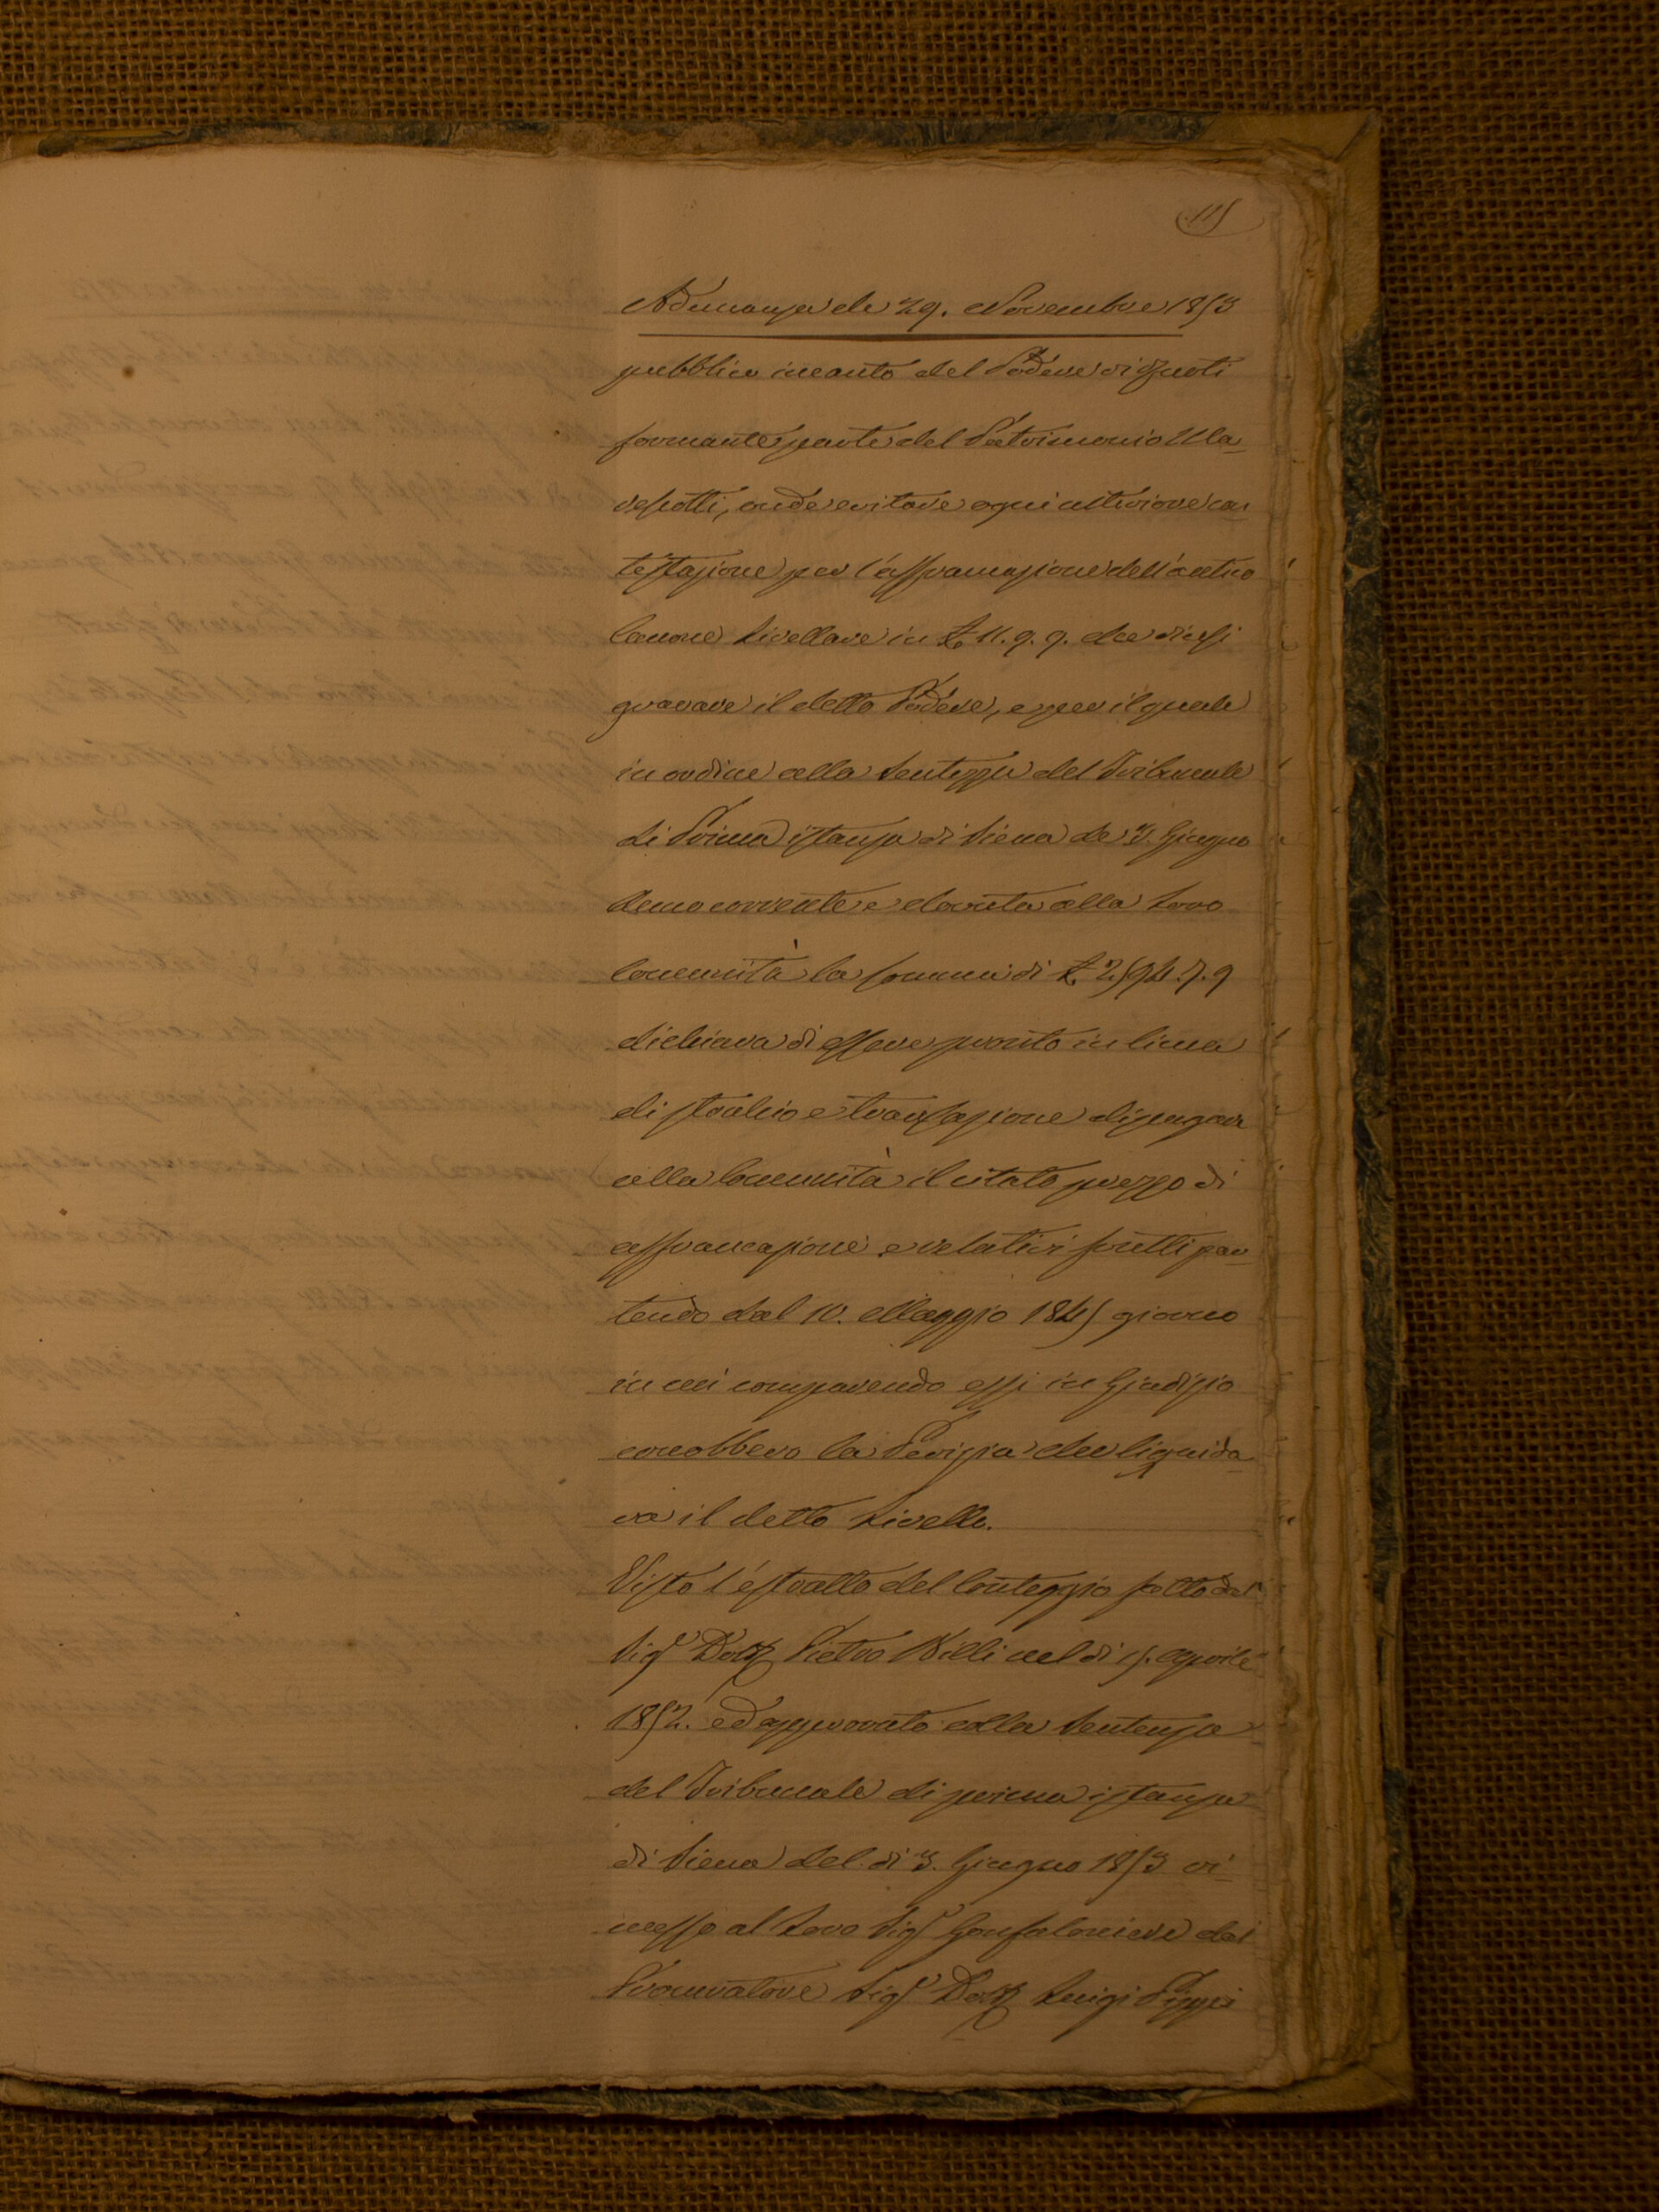 115
Adunanza de 29. Novembre 1853
pubblico incanto del Podere di
formante parte del Patrimonio Ma
rescotti, onde evitare ogni ulteriore con
testazione per l'affrancazione dell'antico
Canone Livellare in £ 11.9.9. che dicesi
gravare il detto Podere, e per il quale
in ordine alla Sentenza del Tribunale
di Prima istanza di Siena de' 3. Giugno
Anno corrente e dovuta alla loro
Comunità la somma di £ 2594.7.9
dichiara di essere pronto in linea
di stralcio e transazione di pagare
alla Comunità il citato prezzo di
affrancazione e relativi frutti par
tendo dal 10. Maggio 1845 giorno
in cui comparendo essi in Giudizio
conobbero la Perizia che liquida
va il detto Livello.
Visto l'estratto del Conteggio fatto dal
Sigr Dottr Pietro Billi nel dì 15. Aprile
1852. ed approvato colla Sentenza
del Tribunale di prima istanza
di Siena del dì 3. Giugno 1853 ri
messo al Loro Sigr Gonfaloniere dal
Procuratore Sigr Dottr Luigi Pippi